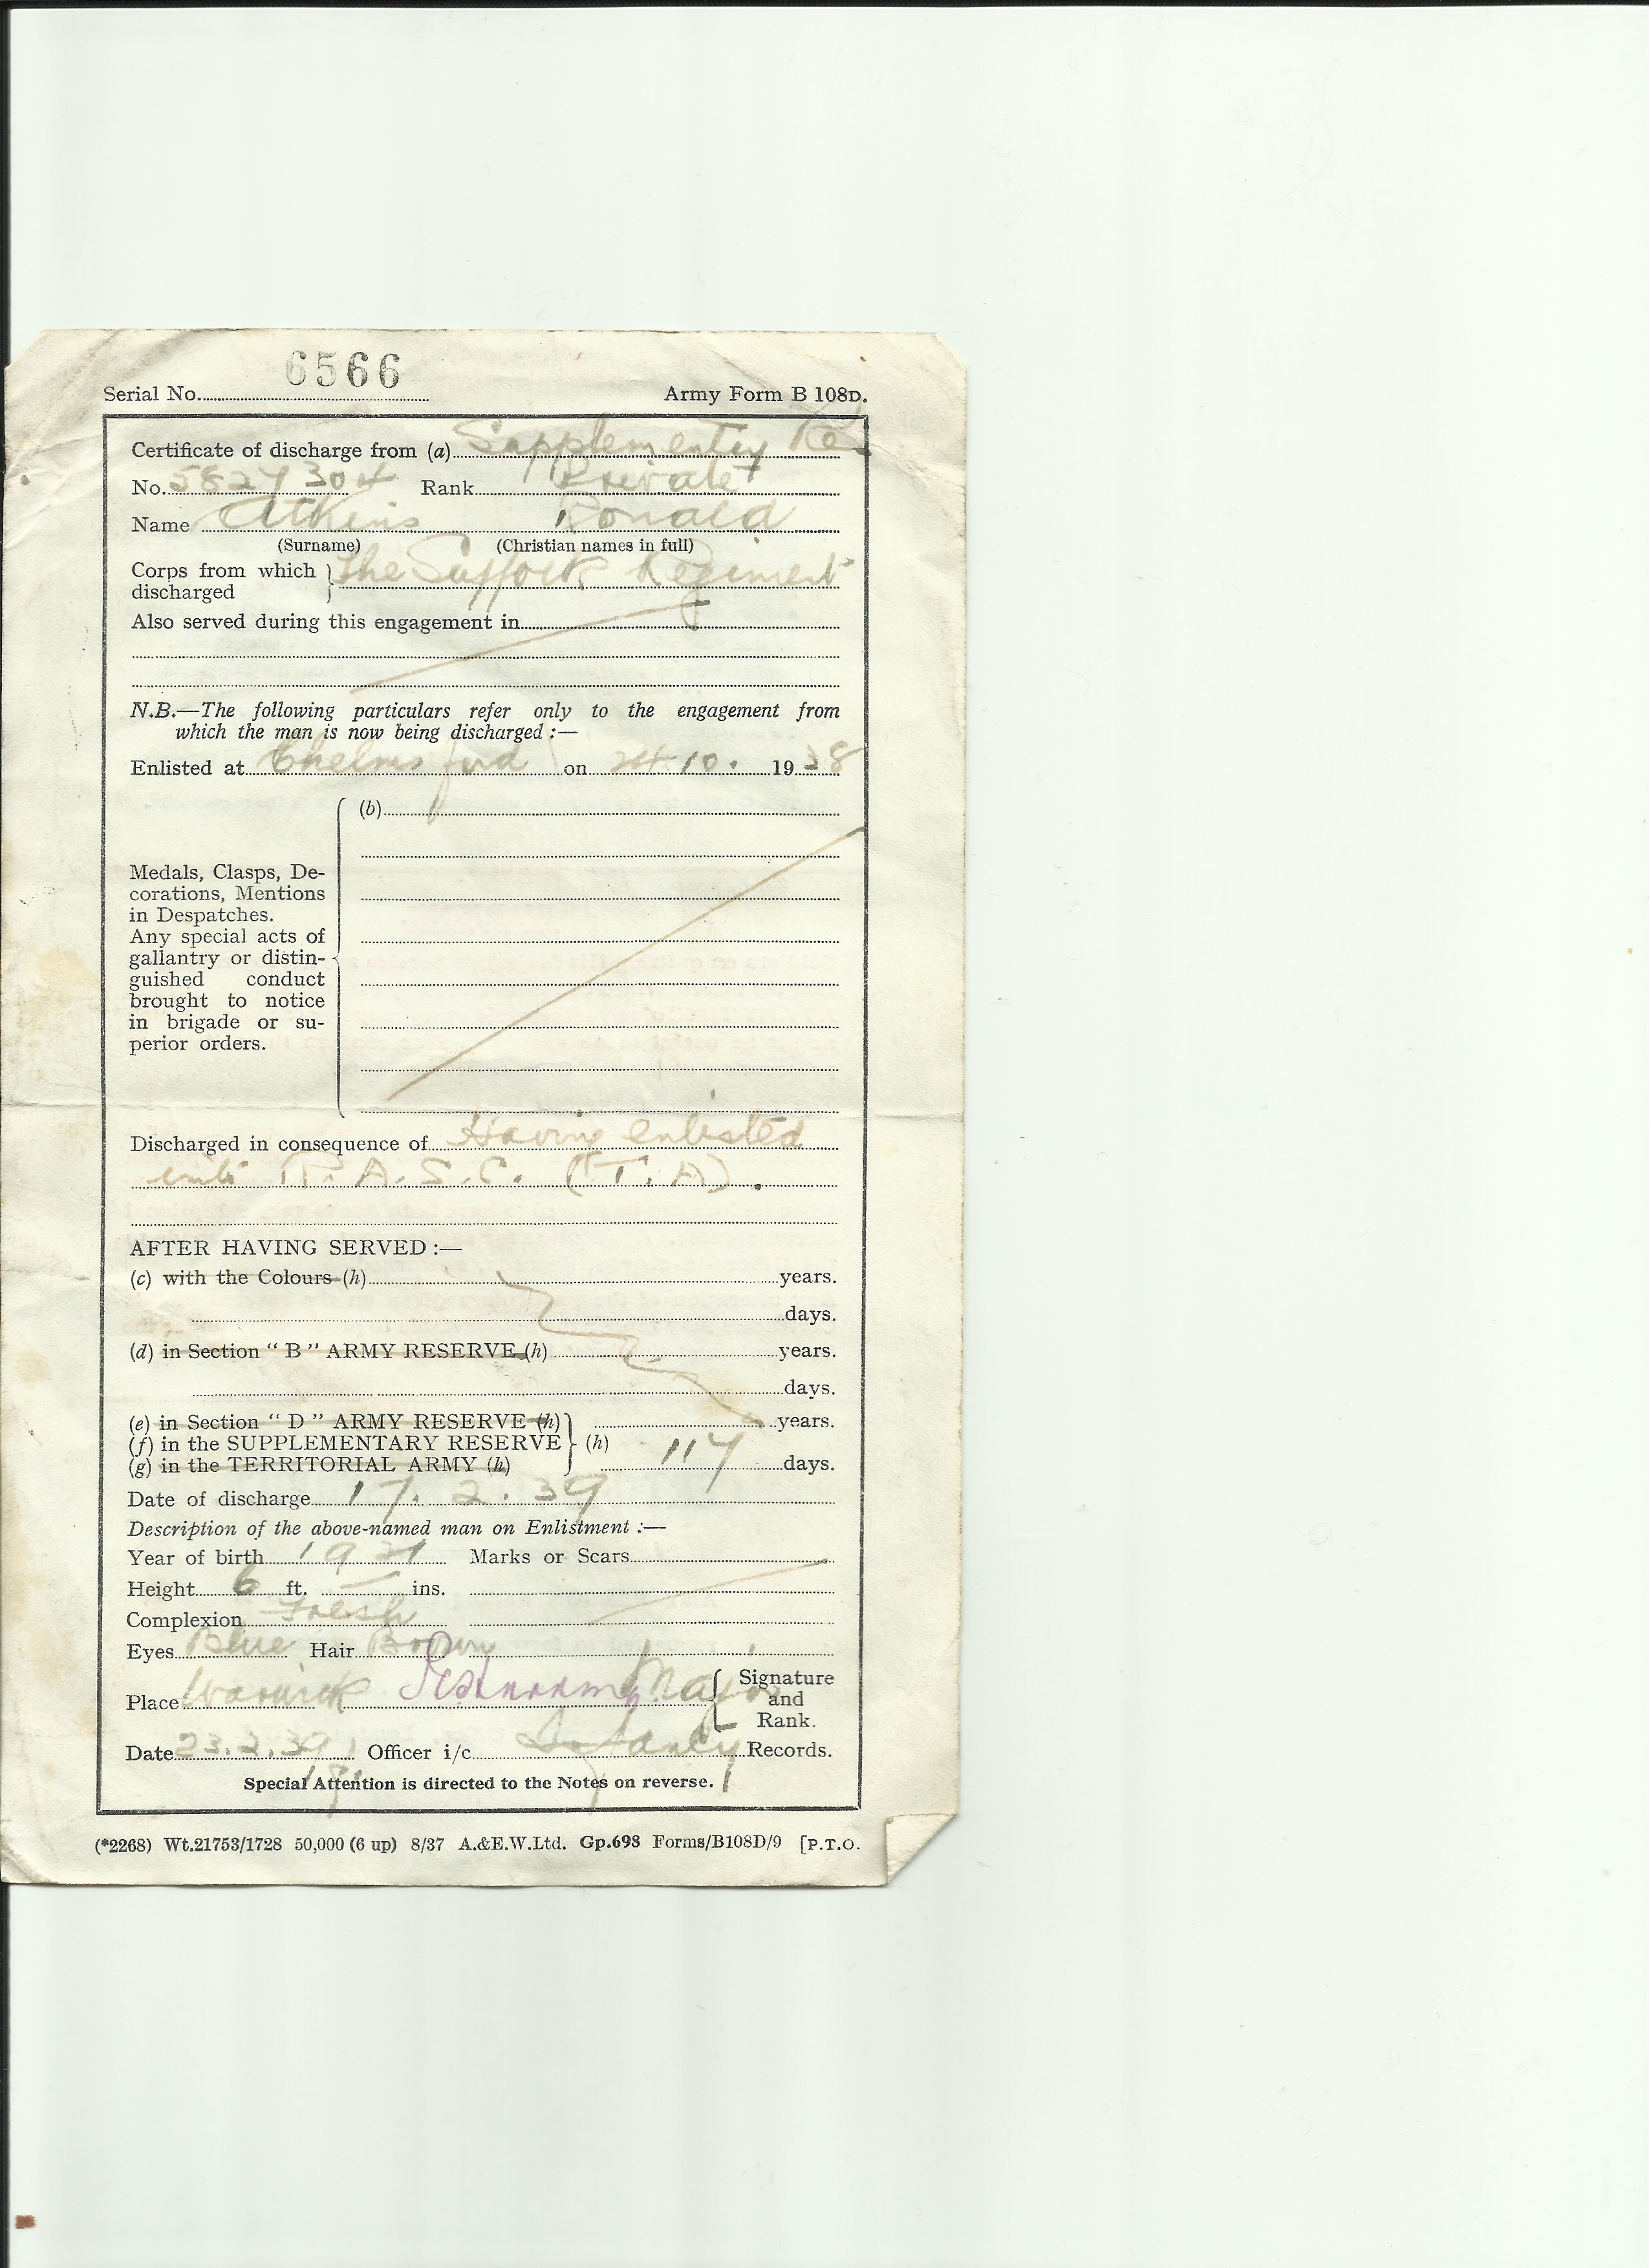 6566
Serial No. Army Form B 108D.
Certificate of discharge from (a) Supplementry Res
No. 5827304 Rank Private
Name Atkins Ronald
(Surname) (Christian names in full)
Corps from which discharged } The Suffolk Regiment
Also served during this engagement in
N.B.—The following particulars refer only to the engagement from
which the man is now being discharged :—
Enlisted at Chelmsford on 24.10. 1938
(b)
Medals, Clasps, De-
corations, Mentions
in Despatches.
Any special acts of
gallantry or distin-
guished conduct
brought to notice
in brigade or su-
perior orders.
Discharged in consequence of Having enlisted
into R.A.S.C. (T.A).
AFTER HAVING SERVED :—
(c) with the Colours (h) years.
days.
(d) in Section "B" ARMY RESERVE (h) years.
days.
(e) in Section "D" ARMY RESERVE (h) years.
(f) in the SUPPLEMENTARY RESERVE } (h) 117
(g) in the TERRITORIAL ARMY (h) days.
Date of discharge 17. 2. 39
Description of the above-named man on Enlistment :—
Year of birth 1921 Marks or Scars
Height 6 ft. — ins.
Complexion Fresh
Eyes Blue Hair Brown
Place Warwick Major { Signature and Rank.
Date 23.2.39 Officer i/c Infantry Records.
Special Attention is directed to the Notes on reverse.
(*2268) Wt.21753/1728 50,000 (6 up) 8/37 A.&E.W.Ltd. Gp.698 Forms/B108D/9 [P.T.O.